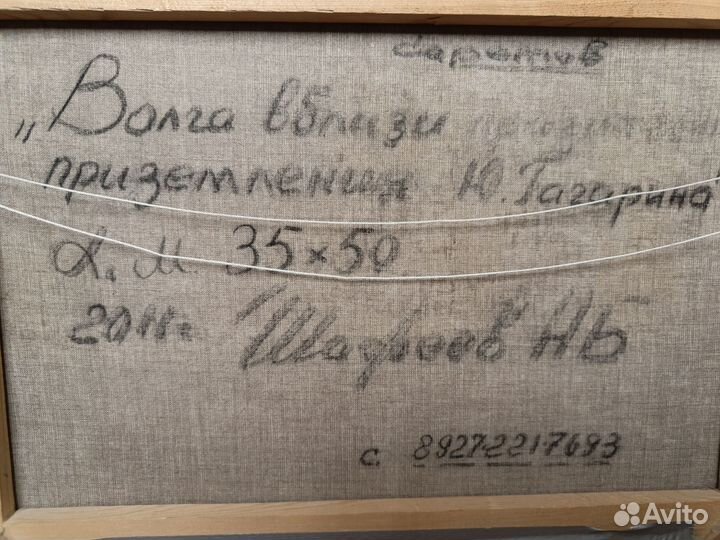 Саратов
„Волга вблизи
приземления Ю. Гагарина"
х. м. 35×50
2011г. НБ
с. 8927-221-7693
Avito